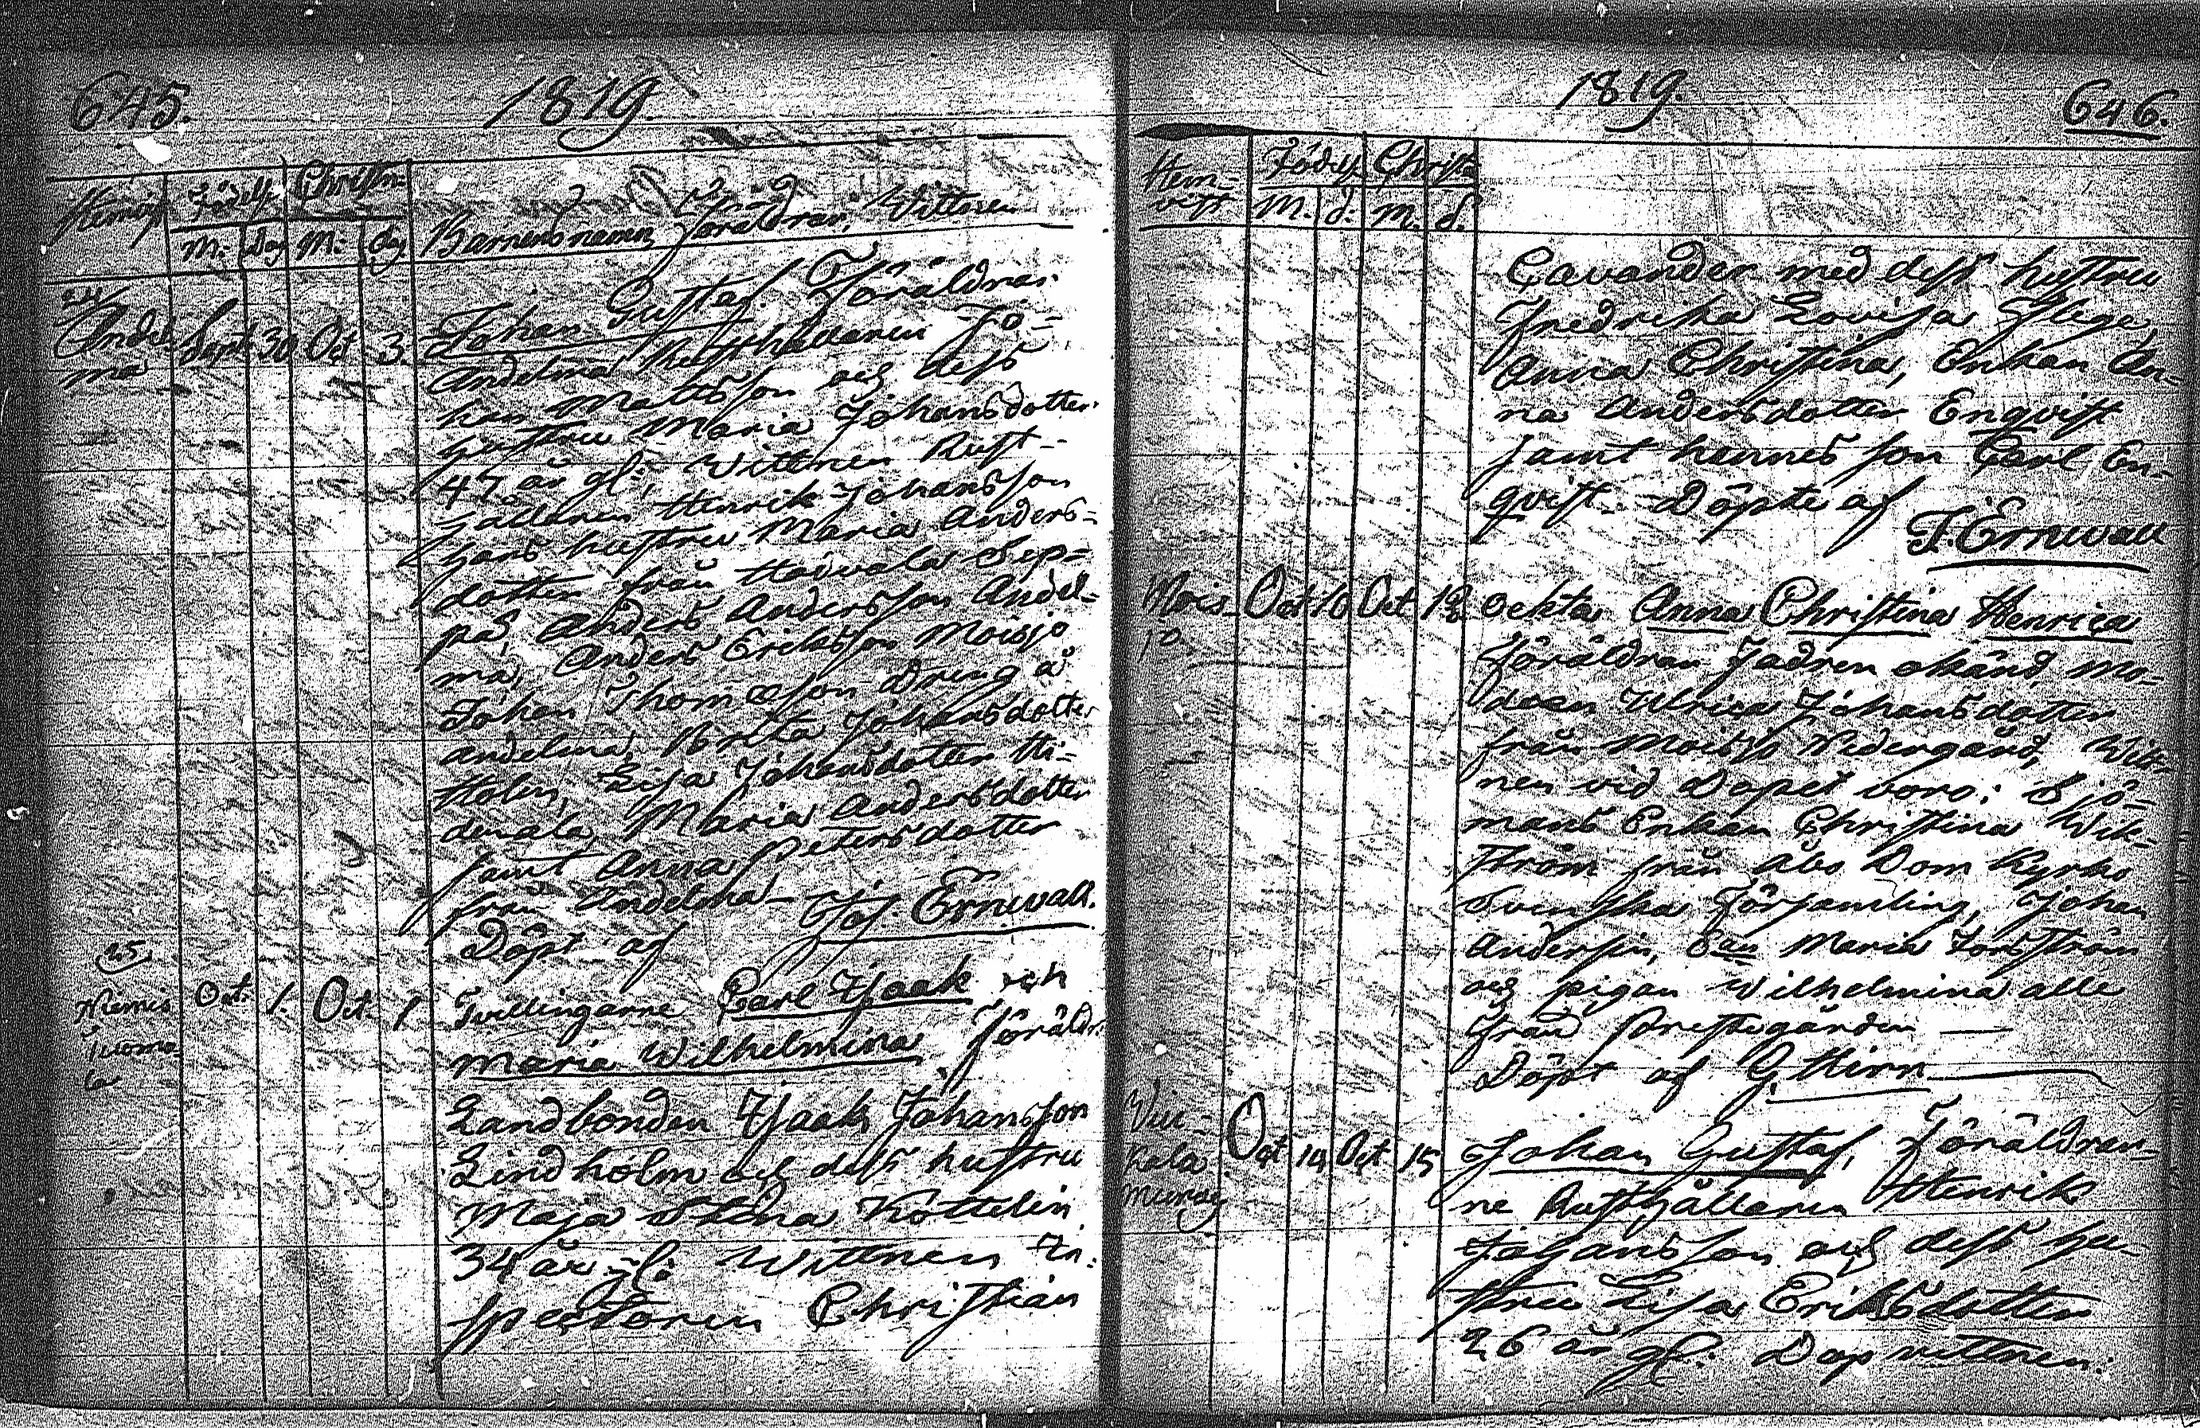 645.
1819.
Hemvist
Födelse
Christn.
M:
Dag
M:
dag
Barnens namn, Föräldrar, Vittnen
24
Andel
ma
Sept
30
Oct
3
Johan Gustaf Föräldrar
Andelma Rusthållaren Jo-
han Mattsson och dess
hustru Maria Johansdotter
47 år gl:, Wittnen Rust-
hållaren Henrik Johansson
hans hustru Maria Anders-
dotter från Sep-
på, Anders Andersson Andel-
ma, Anders Eriksson Moisjo
Johan Thomæson dreng å
Andelma, Brita Johansdotter
Holm, Lisa Johansdotter Hi-
denala Maria Andersdotter
samt Anna Petersdotter
från Andelma -
Döpt af Js. Ernwall.
25
Niemis
Tuoma
la
Oct.
1.
Oct.
1
Tvillingarne Carl Isaak och
Maria Wilhelmina, Föräldr.
Landbonden Isaak Johansson
Lindholm och dess hustru
Maja Stina Köttelin
34 år gl: Wittnen In-
spectoren Christian
1819.
646.
Hem-
vist
Födels
Christ.
M.
d.
M.
d.
Cavander med dess hustru
Fredrika Lovisa Flege,
Anna Christina, Enkan An-
na Andersdotter Enqvist
samt hennes son Carl En-
qvist. Döpte af
J. Ernwall
Mois-
jo
Oct
10
Oct
12
oekta Anna Christina Henrica
Föräldrar Fadren okänd, mo-
dren Ulrica Johansdotter
från Moisjo Nedergård, Witt-
nen vid Dopet voro: Sjö-
mans Enkan Christina Wik-
ström från Åbo Dom Kyrko
Svenska Församling, Johan
Andersin, Maria Forsström
och pigan Wilhelmina alle
från Prestegården —
Döpt af G. Hirn
kala
Oct
14
Oct
15
Johan Gustaf, Föräldrar-
ne Rusthållaren Henrik
Johansson och dess hu-
stru Lisa Eriksdotter
26 år gl: Dopvittnen: